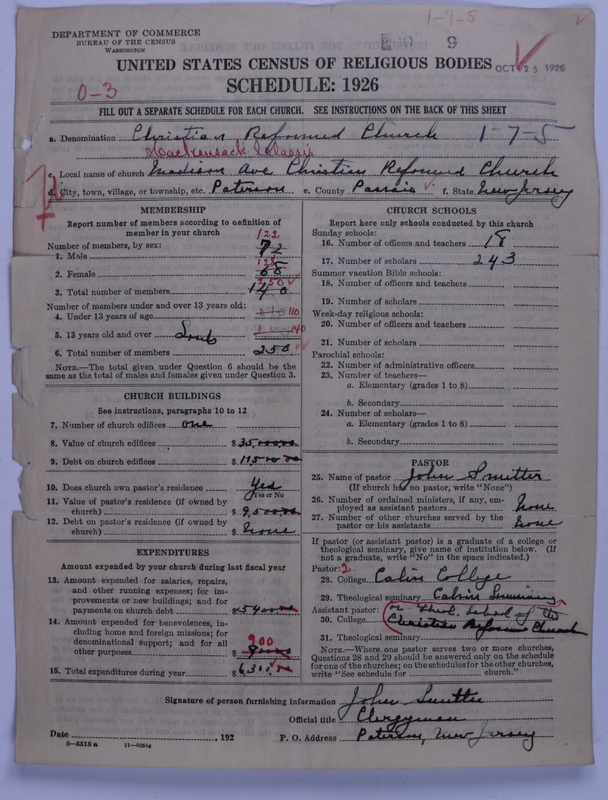 1-7-5
DEPARTMENT OF COMMERCE
BUREAU OF THE CENSUS
WASHINGTON
9
UNITED STATES CENSUS OF RELIGIOUS BODIES
OCT 23 1926
SCHEDULE: 1926
0-3
FILL OUT A SEPARATE SCHEDULE FOR EACH CHURCH. SEE INSTRUCTIONS ON THE BACK OF THIS SHEET
a. Denomination Christian Reformed Church 1-7-5
Hackensack Classis
c. Local name of church Madison Ave Christian Reformed Church
d. City, town, village, or township, etc. Paterson e. County Passaic f. State New Jersey
MEMBERSHIP
Report number of members according to definition of member in your church
Number of members, by sex:
122
1. Male 72
128
2. Female 68
250
3. Total number of members 140
Number of members under and over 13 years old:
4. Under 13 years of age 110 110
5. 13 years old and over 140
6. Total number of members 250
NOTE.—The total given under Question 6 should be the same as the total of males and females given under Question 3.
CHURCH BUILDINGS
See instructions, paragraphs 10 to 12
7. Number of church edifices one
8. Value of church edifices $ 35,000.00
9. Debt on church edifices $ 11500.00
10. Does church own pastor's residence Yes
Yes or No
11. Value of pastor's residence (if owned by church) $ 9,500.00
12. Debt on pastor's residence (if owned by church) $ none
EXPENDITURES
Amount expended by your church during last fiscal year
13. Amount expended for salaries, repairs, and other running expenses; for improvements or new buildings; and for payments on church debt $ 5400.00
14. Amount expended for benevolences, including home and foreign missions; for denominational support; and for all other purposes $ 900
15. Total expenditures during year $ 6,300.00
CHURCH SCHOOLS
Report here only schools conducted by this church
Sunday schools:
16. Number of officers and teachers 18
17. Number of scholars 243
Summer vacation Bible schools:
18. Number of officers and teachers
19. Number of scholars
Week-day religious schools:
20. Number of officers and teachers
21. Number of scholars
Parochial schools:
22. Number of administrative officers
23. Number of teachers—
a. Elementary (grades 1 to 8)
b. Secondary
24. Number of scholars—
a. Elementary (grades 1 to 8)
b. Secondary
PASTOR
25. Name of pastor John Smitter
(If church has no pastor, write "None")
26. Number of ordained ministers, if any, employed as assistant pastors none
27. Number of other churches served by the pastor or his assistants none
If pastor (or assistant pastor) is a graduate of a college or theological seminary, give name of institution below. (If not a graduate, write "No" in the space indicated.)
Pastor: 2
28. College Calvin College
29. Theological seminary Calvin Seminary
Assistant pastor: or Theol. School of the
30. College Christian Reformed Church
31. Theological seminary
NOTE.—Where one pastor serves two or more churches, Questions 28 and 29 should be answered only on the schedule for one of the churches; on the schedules for the other churches, write "See schedule for church."
Signature of person furnishing information John Smitter
Official title Clergyman
Date , 192 P. O. Address Paterson, New Jersey
8-5518a 11-9354g